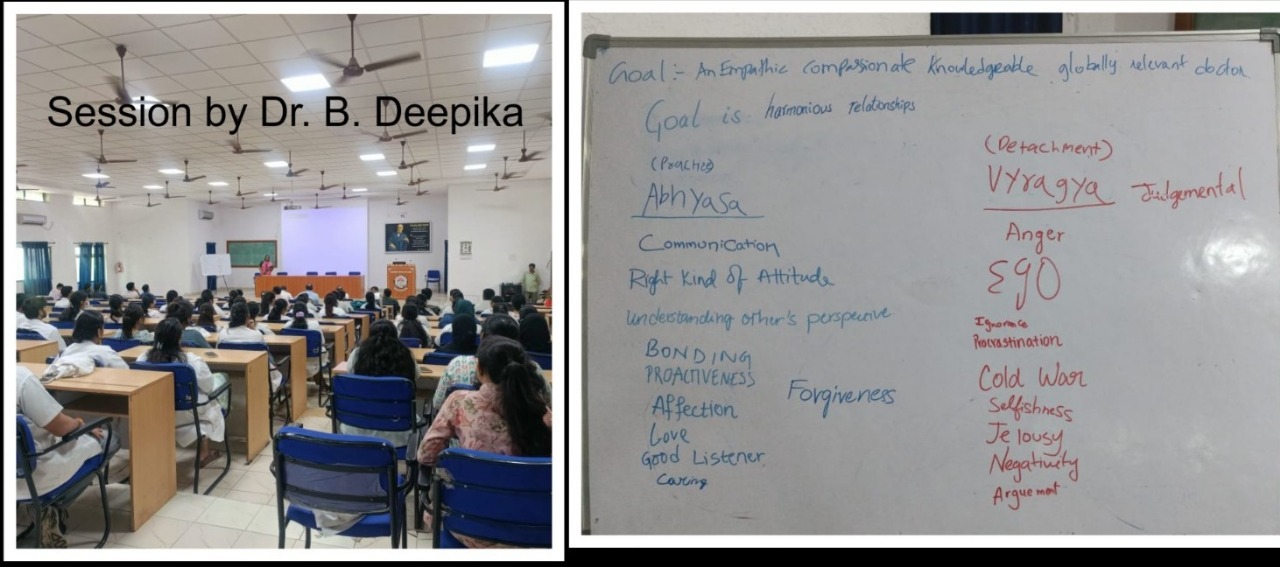 Session by Dr. B. Deepika
Goal :- An Empathic compassionate knowledgeable globally relevant doctor
Goal is harmonious relationships
(Practice)
Abhyasa
Communication
Right kind of Attitude
understanding other's perspective
BONDING
PROACTIVENESS
Affection
Forgiveness
Love
Good Listener
Caring
(Detachment)
Vyragya
Judgemental
Anger
Ego
Ignorance
Procrastination
Cold War
Selfishness
Jelousy
Negativity
Arguement